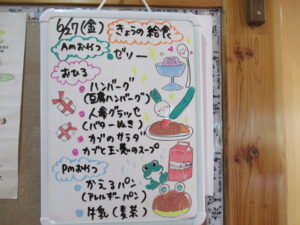 6/27(金) きょうの給食
Amおやつ
ゼリー
おひる
ハンバーグ
(豆腐ハンバーグ)
人参グラッセ
(バターぬき)
カブのサラダ
カブと玉ねぎのスープ
Pmおやつ
かえるパン
(アレルギーパン)
牛乳(麦茶)